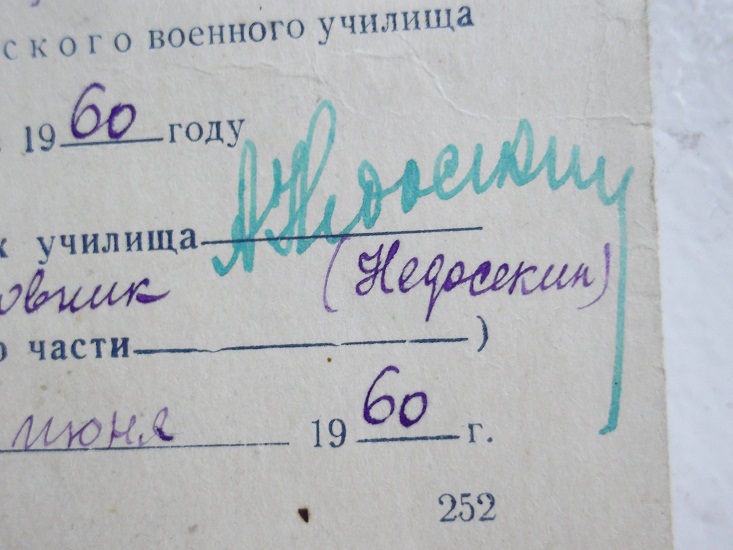 ского военного училища
в 1960 году
к училища А Недосекин
овник (Недосекин)
о части )
июня 1960 г.
252